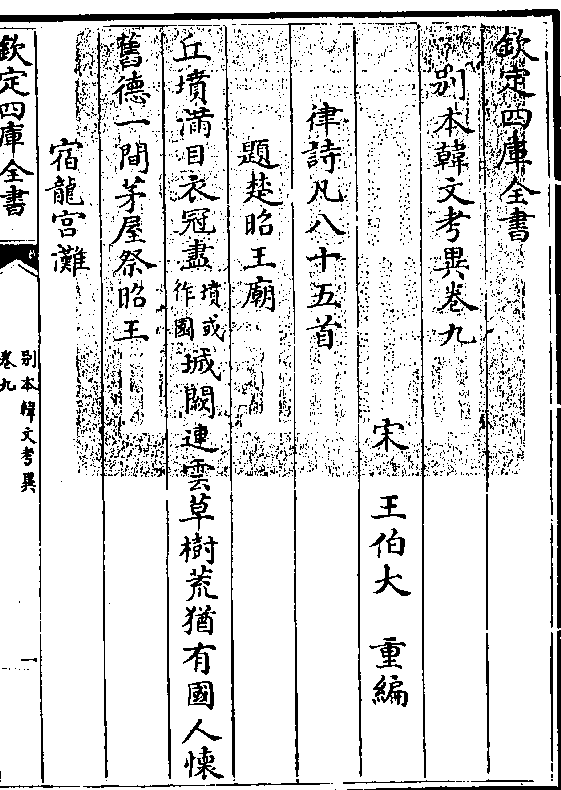 欽定四庫全書
别本韓文考異卷九
宋 王伯大 重編
律詩凡八十五首
題楚昭王廟
丘墳滿目衣冠盡墳或作園城闕連雲草樹荒猶有國人懐
舊德一間茅屋祭昭王
宿龍宫灘
欽定四庫全書
别本韓文考異
卷九
一